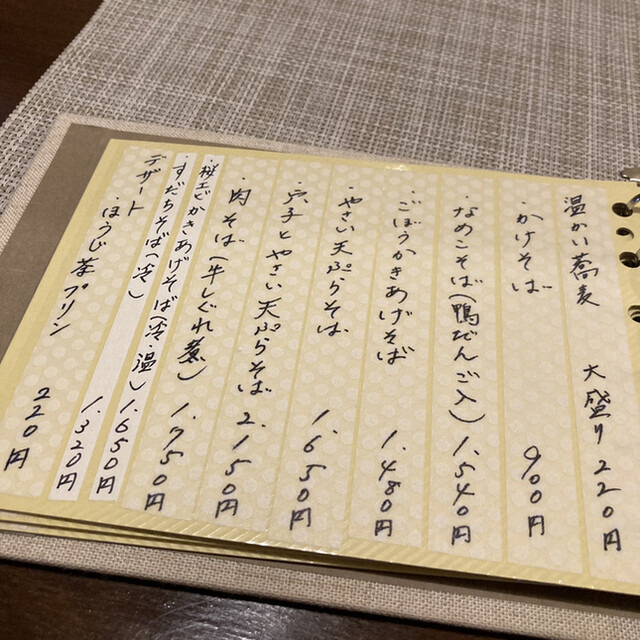 温かい蕎麦 大盛り 220円
・かけそば 900円
・なめこそば(鴨だんご入) 1.540円
・ごぼうかきあげそば 1.480円
・やさい天ぷらそば 1.650円
・穴子とやさい天ぷらそば 2.150円
・肉そば(牛しぐれ煮) 1.750円
・桜エビかきあげそば(冷・温) 1.650円
・すだちそば(冷) 1.320円
デザート
ほうじ茶プリン 220円